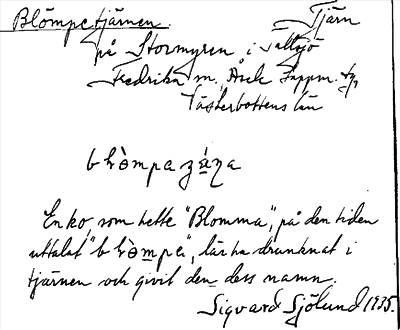 Blömpetjärnen. Tjärn
på Stormyren i Tallsjö
Fredrika sn, Åsele lappm.
Västerbottens län
En ko, som hette "Blomma", på den tiden
uttalat , lär ha drunknat i
tjärnen och givit den dess namn.
Sigvard Sjölund 1935.